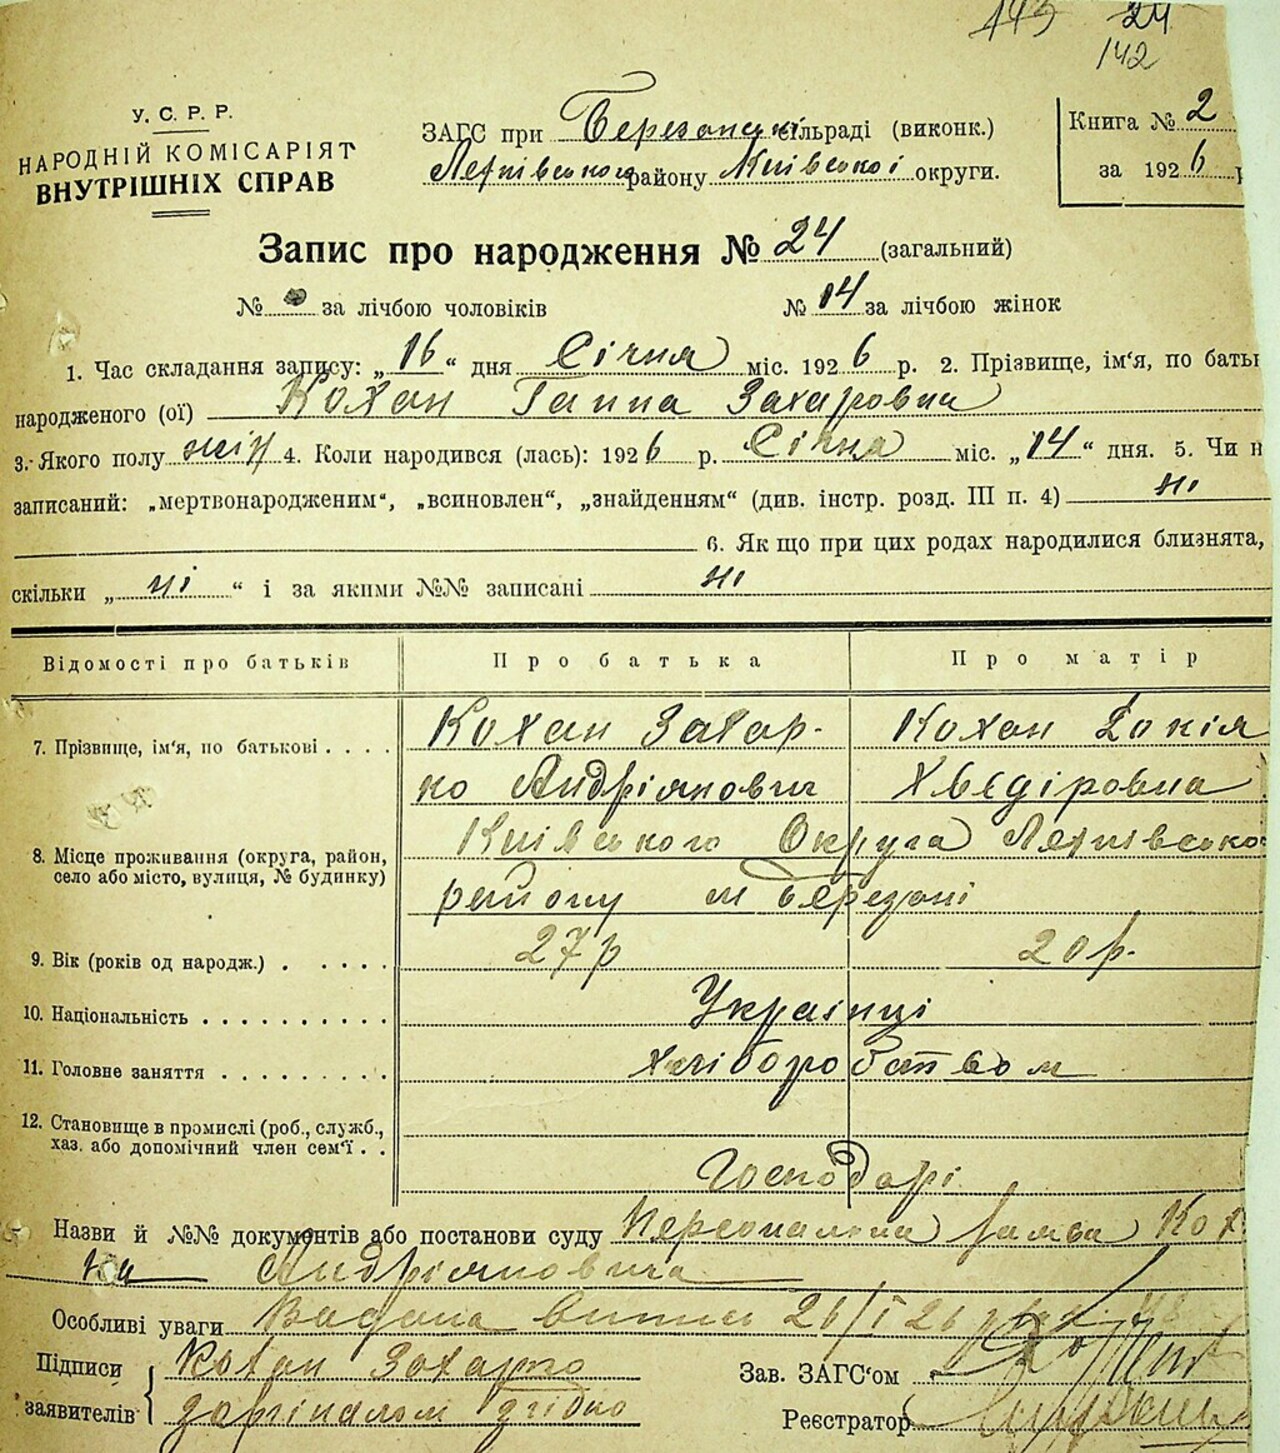 193 24
142
У. С. Р. Р.
НАРОДНІЙ КОМІСАРІЯТ
ВНУТРІШНІХ СПРАВ
ЗАГС при Березанськ сільраді (виконк.)
району Київської округи.
Книга № 2
за 1926
Запис про народження № 24 (загальний)
№ за лічбою чоловіків № 14 за лічбою жінок
1. Час складання запису: „16“ дня Січня міс. 1926 р. 2. Прізвище, ім‘я, по бать
народженого (ої) Кохан Ганна Захаровна
3. Якого полу жін 4. Коли народився (лась): 1926 р. Січня міс. „14“ дня. 5. Чи н
записаний: „мертвонародженим“, „всиновлен“, „знайденням“ (див. інстр. розд. III п. 4) ні
6. Як що при цих родах народилися близнята,
скільки „ні“ і за якими №№ записані ні
Відомості про батьків Про батька Про матір
7. Прізвище, ім‘я, по батькові . . . . Кохан Захар- Кохан Докія
ко Андріянович Хведіровна
8. Місце проживання (округа, район,
село або місто, вулиця, № будинку)
Київського Округа
району м Березані
9. Вік (років од народж.) . . . . . 27 р 20 р.
10. Національність . . . . . . . . . . Українці
11. Головне заняття . . . . . . . . . хліборобством
12. Становище в промислі (роб., служб.,
хаз. або допомічний член сем‘ї . .
Господарі
Назви й №№ документів або постанови суду Персональна заява Кох
на Андріяновича
Особливі уваги Видана 26/I 26
Підписи
заявителів
Кохан Захарко
Зав. ЗАГС‘ом
Реєстратор